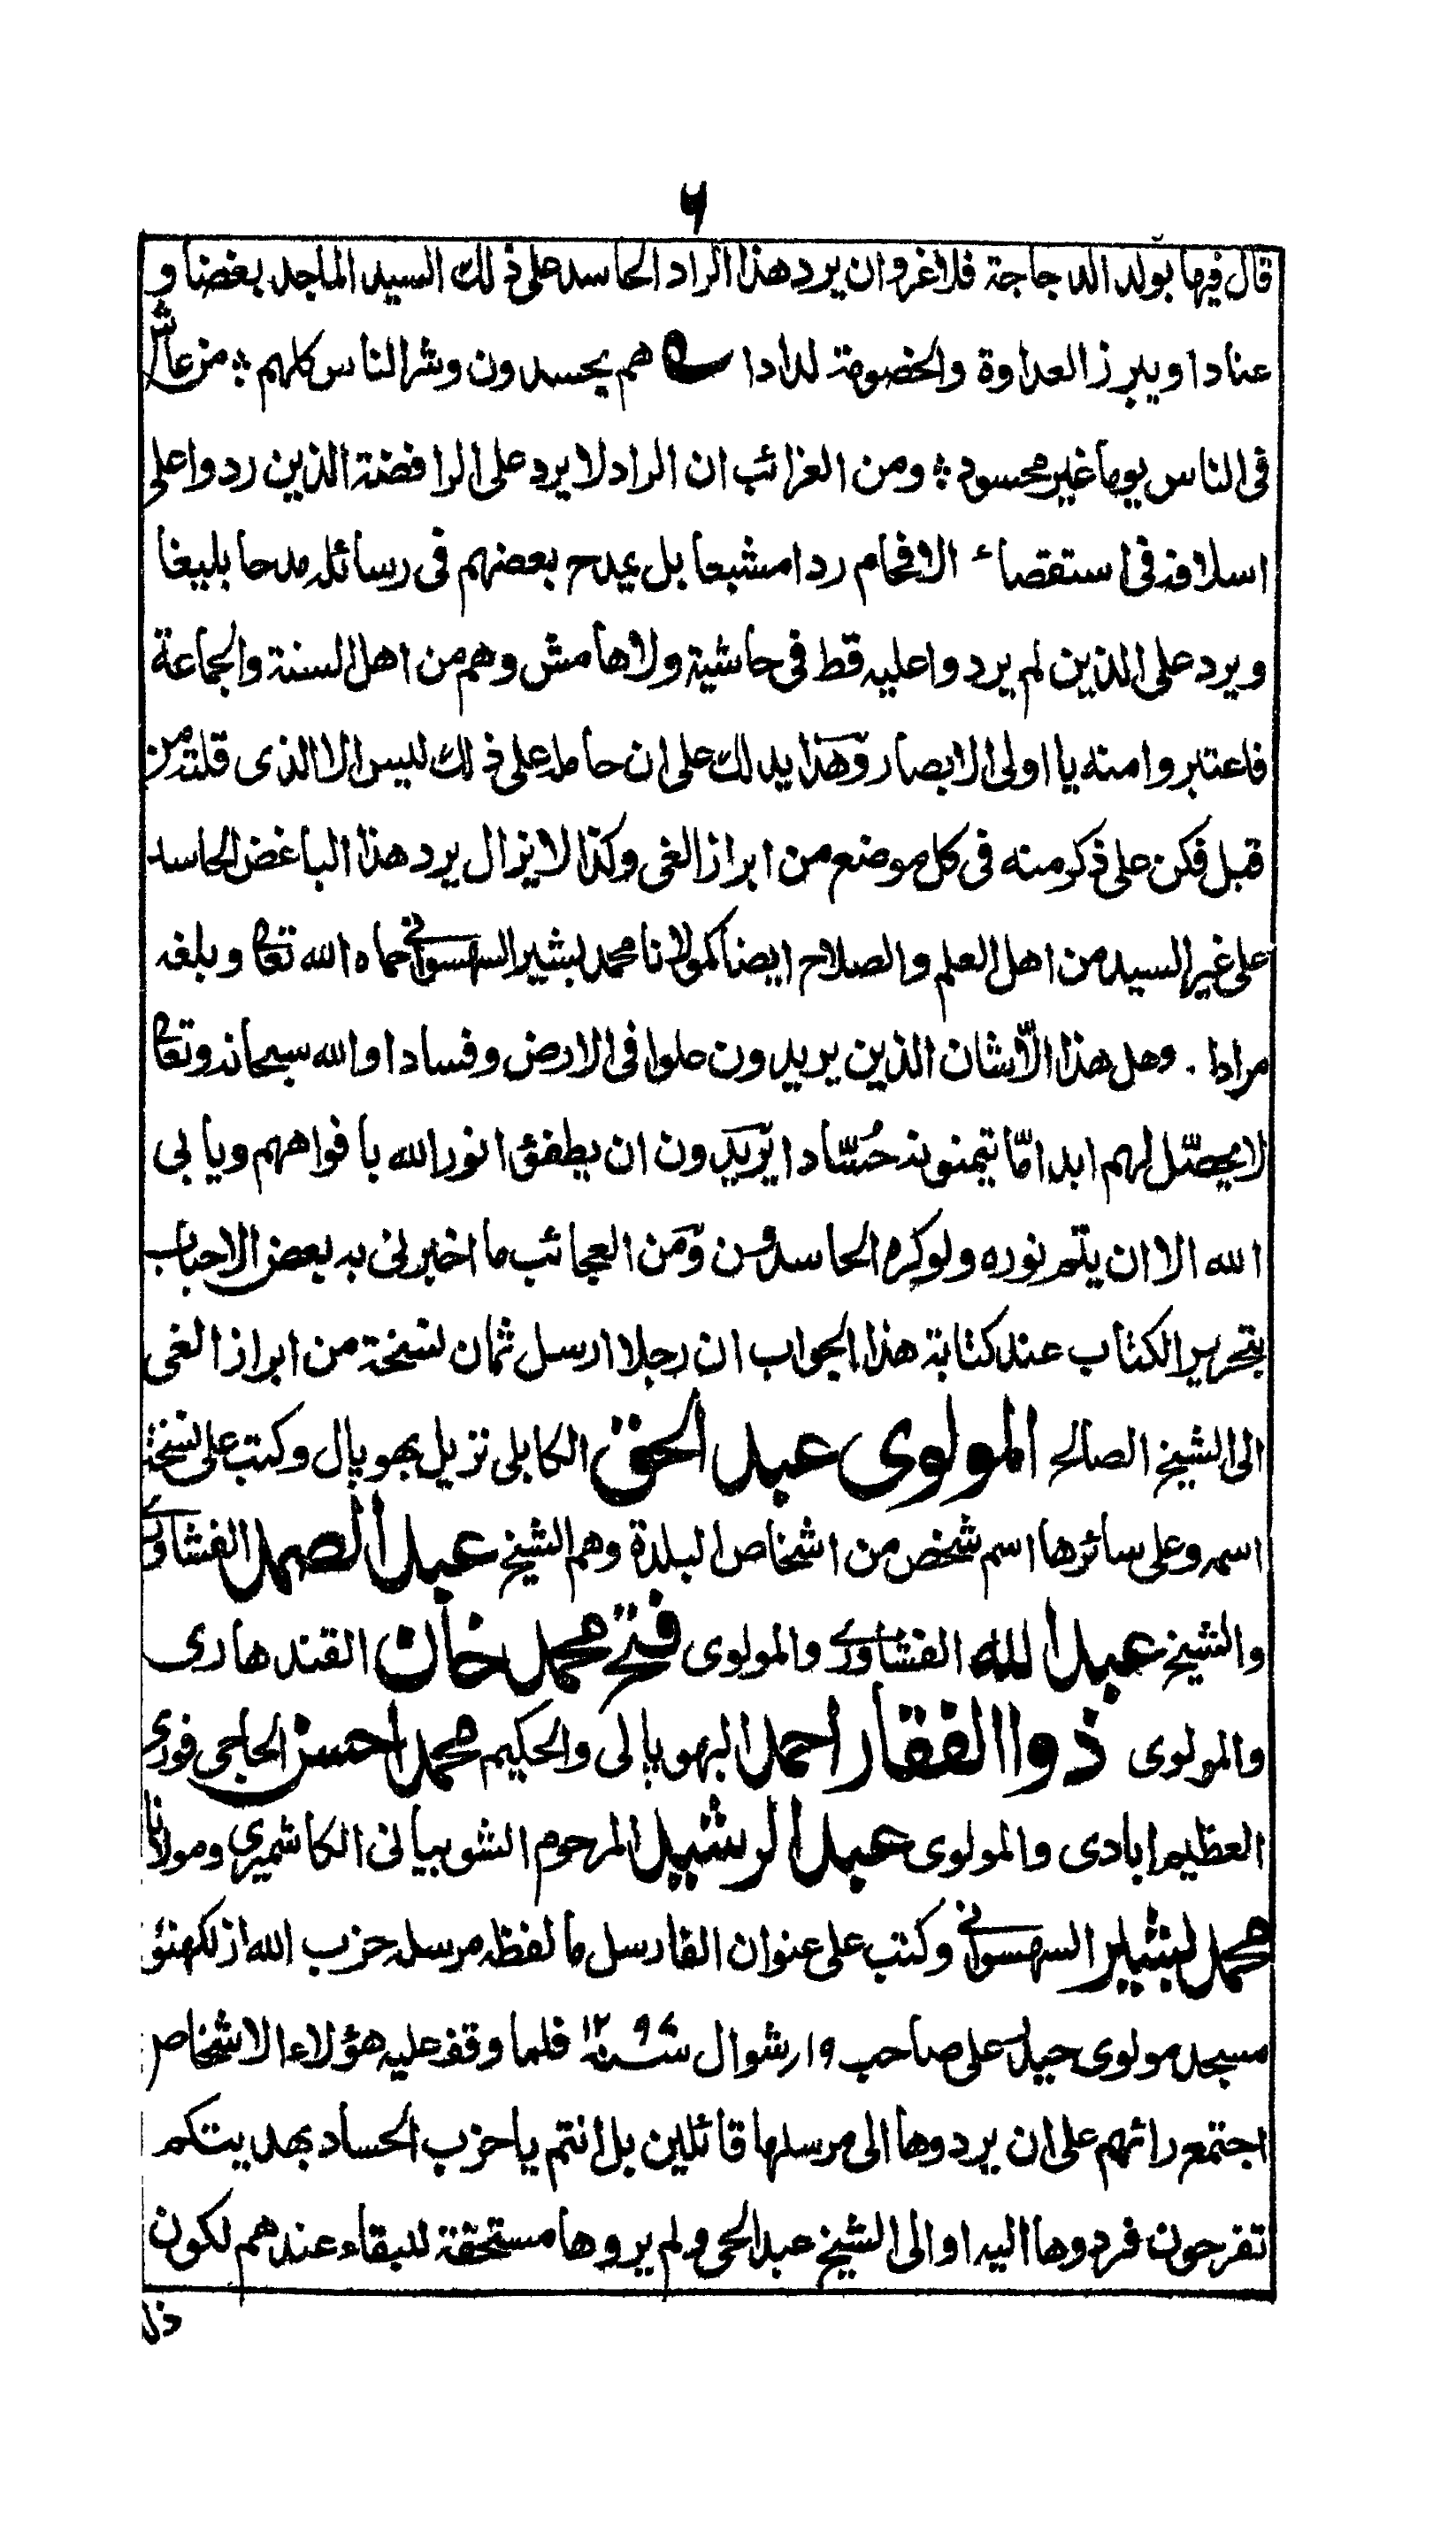 ٦
قال فيها بولد الدجاجة فلاغرو ان يرد هذا الراد الحاسد على ذلك السيد الماجد بغضا و
عنادا ويبرز العداوة والخصومة لدادا هم يحسدون وشر الناس كلهم ؞ من عاش
فى الناس يوما غير محسود ؞ ومن الغرائب ان الراد لا يرد على الرافضة الذين ردوا على
اسلافه فى استقصاء الافحام ردا مشبعا بل يمدح بعضهم فى رسائله مدحا بليغا
ويرد على الذين لم يردوا عليه قط فى حاشية ولا هامش وهم من اهل السنة والجماعة
فاعتبروا منه يا اولى الابصار وهذا يدلك على ان حامله على ذلك ليس الا الذى قلته من
قبل فكن على ذكر منه فى كل موضع من ابراز الغى وكذا لا يزال يرد هذا الباغض الحاسد
على غير السيد من اهل العلم والصلاح ايضا كمولانا محمد بشير السهسوانى حماه الله تعا وبلغه
مرادا . وهل هذا الا شان الذين يريدون علوا فى الارض وفسادا والله سبحانه وتعا
لا يحصّل لهم ابدا مّا يتمنونه حُسّادا يريدون ان يطفئوا نور الله بافواههم ويابى
الله الا ان يتم نوره ولو كره الحاسدون ومن العجائب ما اخبرنى به بعض الاحباب
بتحرير الكتاب عند كتابة هذا الجواب ان رجلا ارسل ثمان نسخة من ابراز الغى
الى الشيخ الصالح المولوى عبد الحق الكابلى نزيل بهوپال وكتب على نسخة
اسمه وعلى سائرها اسم شخص من اشخاص البلدة وهم الشيخ عبد الصمد الفشاورى
والشيخ عبد الله الفشاورى والمولوى فتح محمد خان القندهارى
والمولوى ذوا الفقار احمد البهوپالى والحكيم محمد احسن الحاجى فورى
العظيم ابادى والمولوى عبد الرشيد المرحوم الشوپيانى الكاشميرى ومولانا
محمد بشير السهسوانى وكتب على عنوان الفارسل ما لفظه مرسله حزب الله از لكهنؤ
مسجد مولوى حيدر على صاحب ١٩ رشوال سنه ١٢٩٧ فلما وقف عليه هؤلاء الاشخاص
اجتمع رائهم على ان يردوها الى مرسلها قائلين بل انتم يا حزب الحساد بهديتكم
تفرحون فردوها اليه او الى الشيخ عبد الحى ولم يروها مستحقة للبقاء عندهم لكون
ذلك